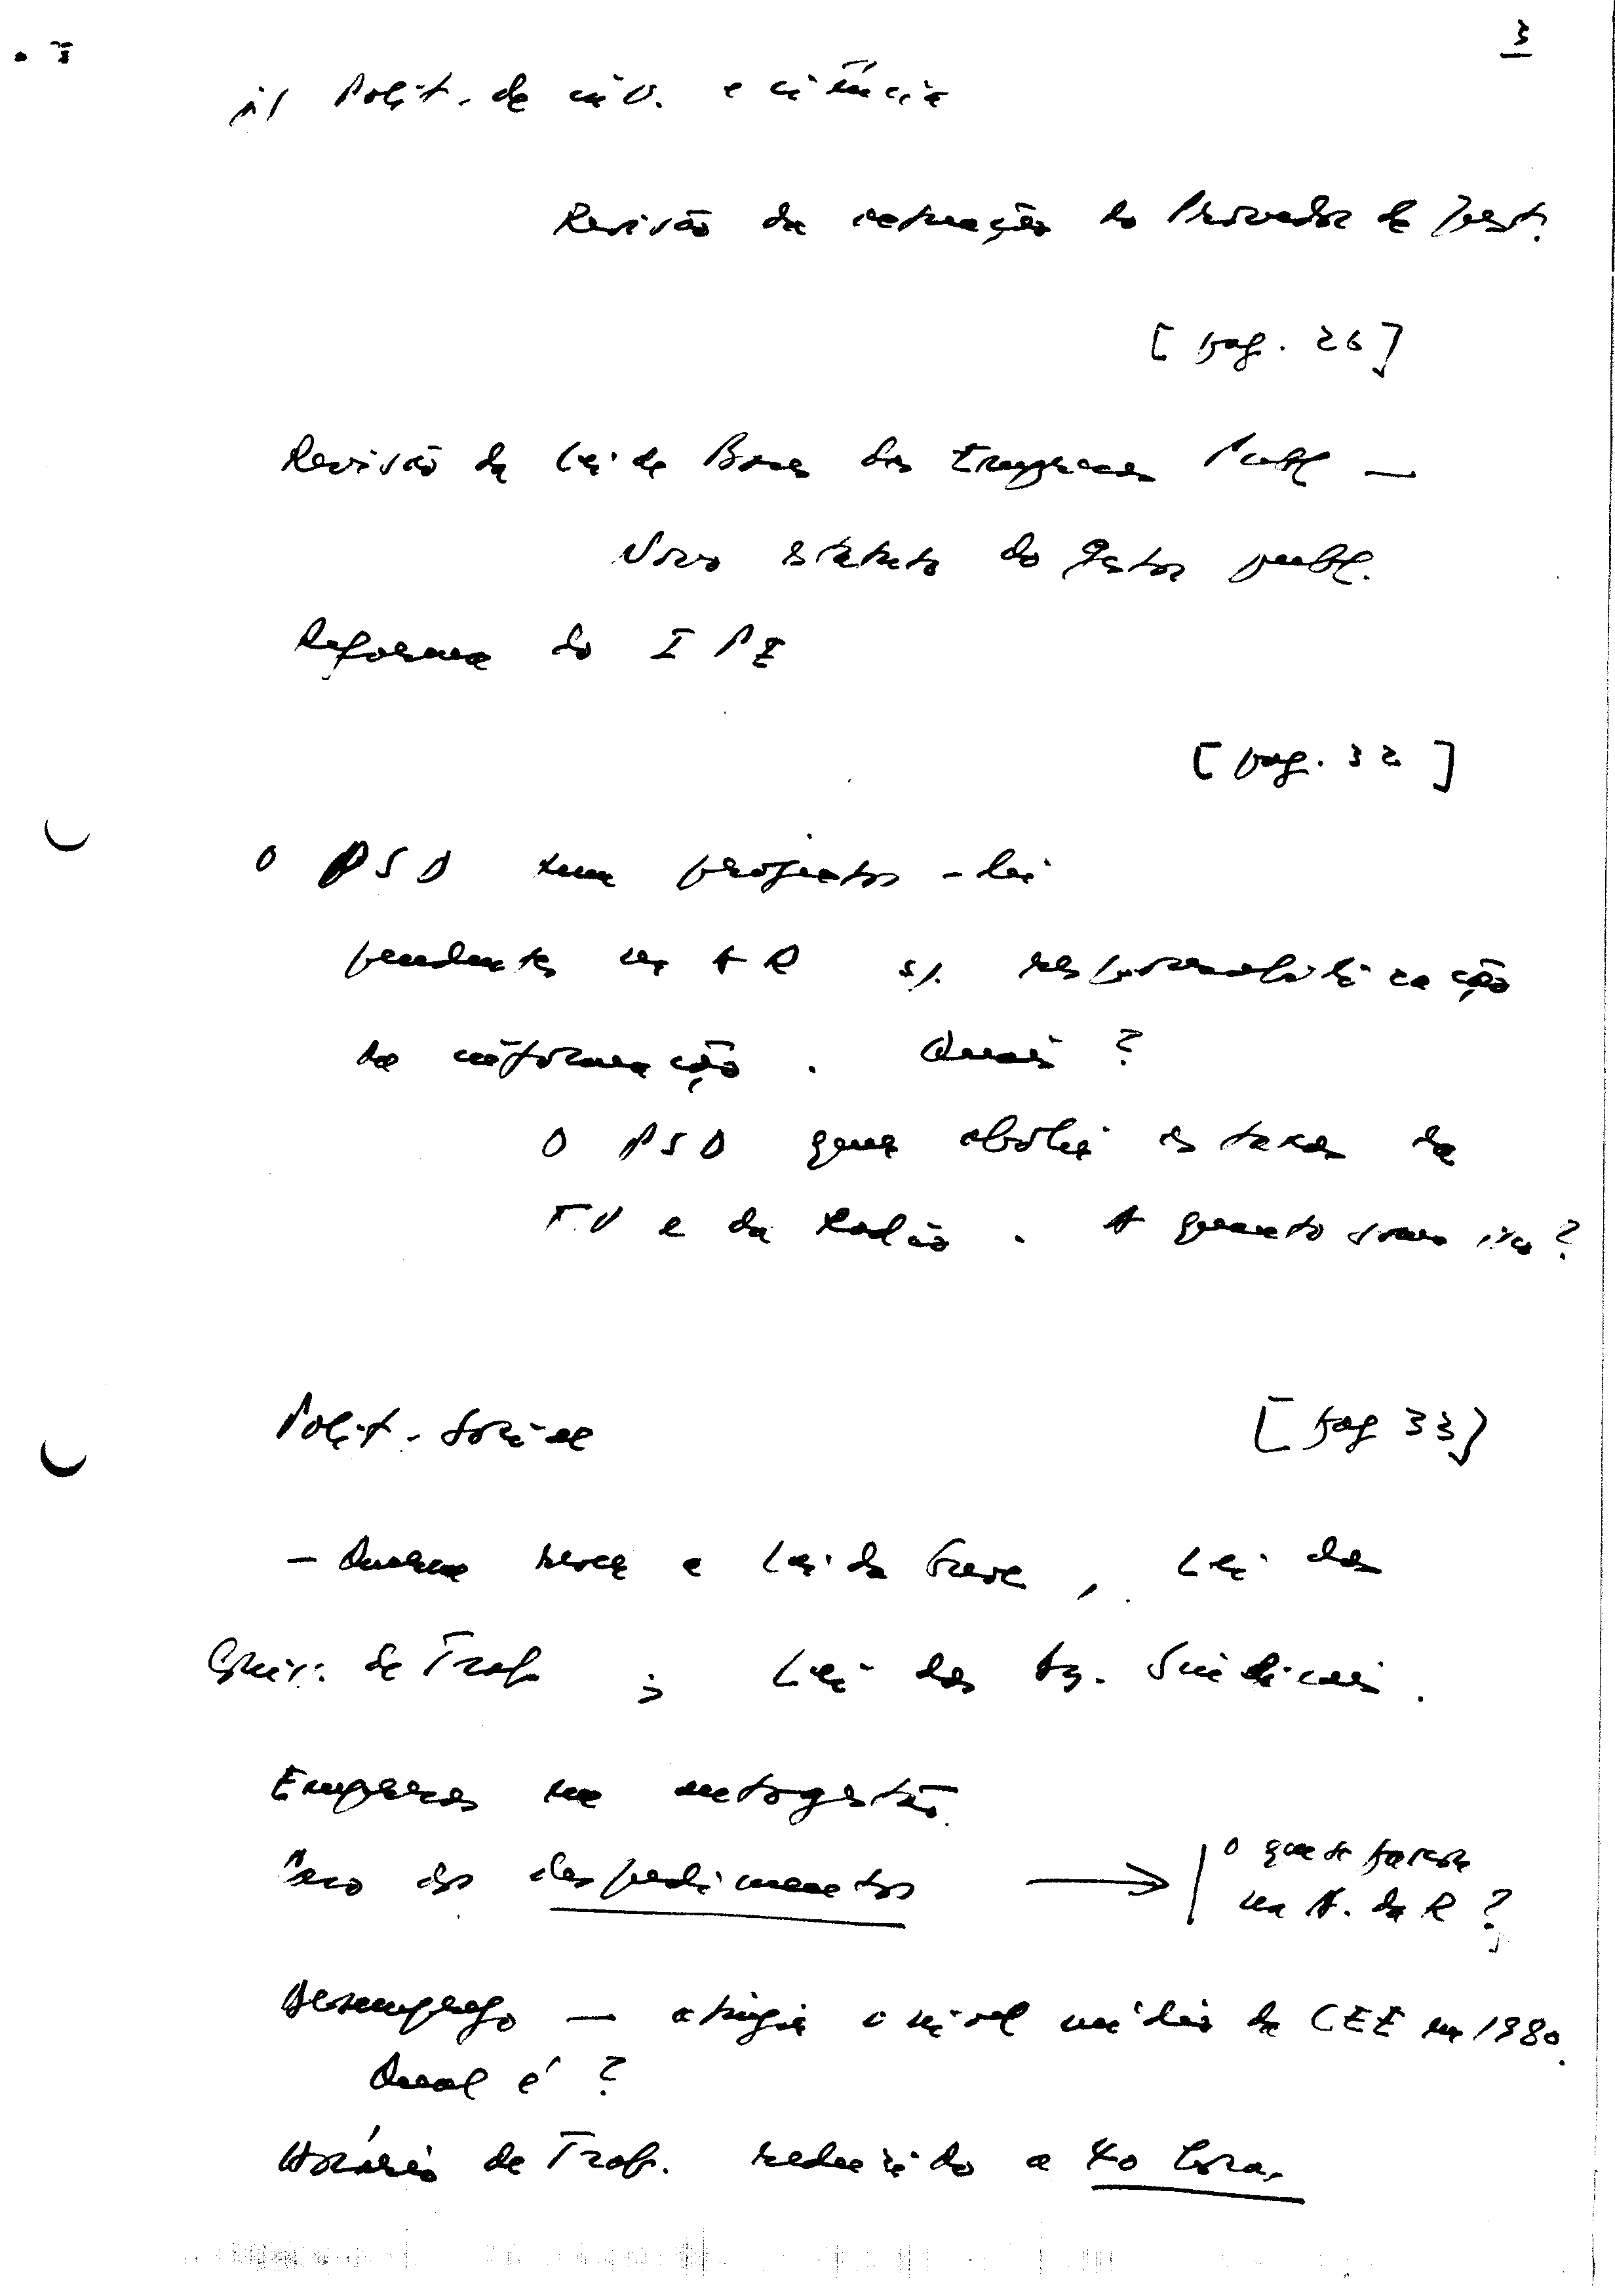 3
Polít. de inv. e ciência
Revisão da actuação do Provedor de Just.
[pag. 26]
Revisão da Lei de Bases das Empresas Publ —
Novo estatuto do gestor publ.
Reforma do IPE
[pag. 32]
O PSD tem projectos-lei
pendentes na AR s/. responsabilização
da informação. Quais?
O PSD quer abolir as taxas da
TV e da Rádio. A quanto soma isso?
Polít. Social
[pag 33]
— Quer rever a Lei da Greve, Lei das
Comis. de Trab.; Lei das As. Sindicais.
Empresas em autogestão.
Caso dos despedimentos → | o que se passou
na A. da R?
Desemprego — atingir o nível médio da CEE em 1980.
Qual é?
Horário de Trab. reduzido a 40 horas